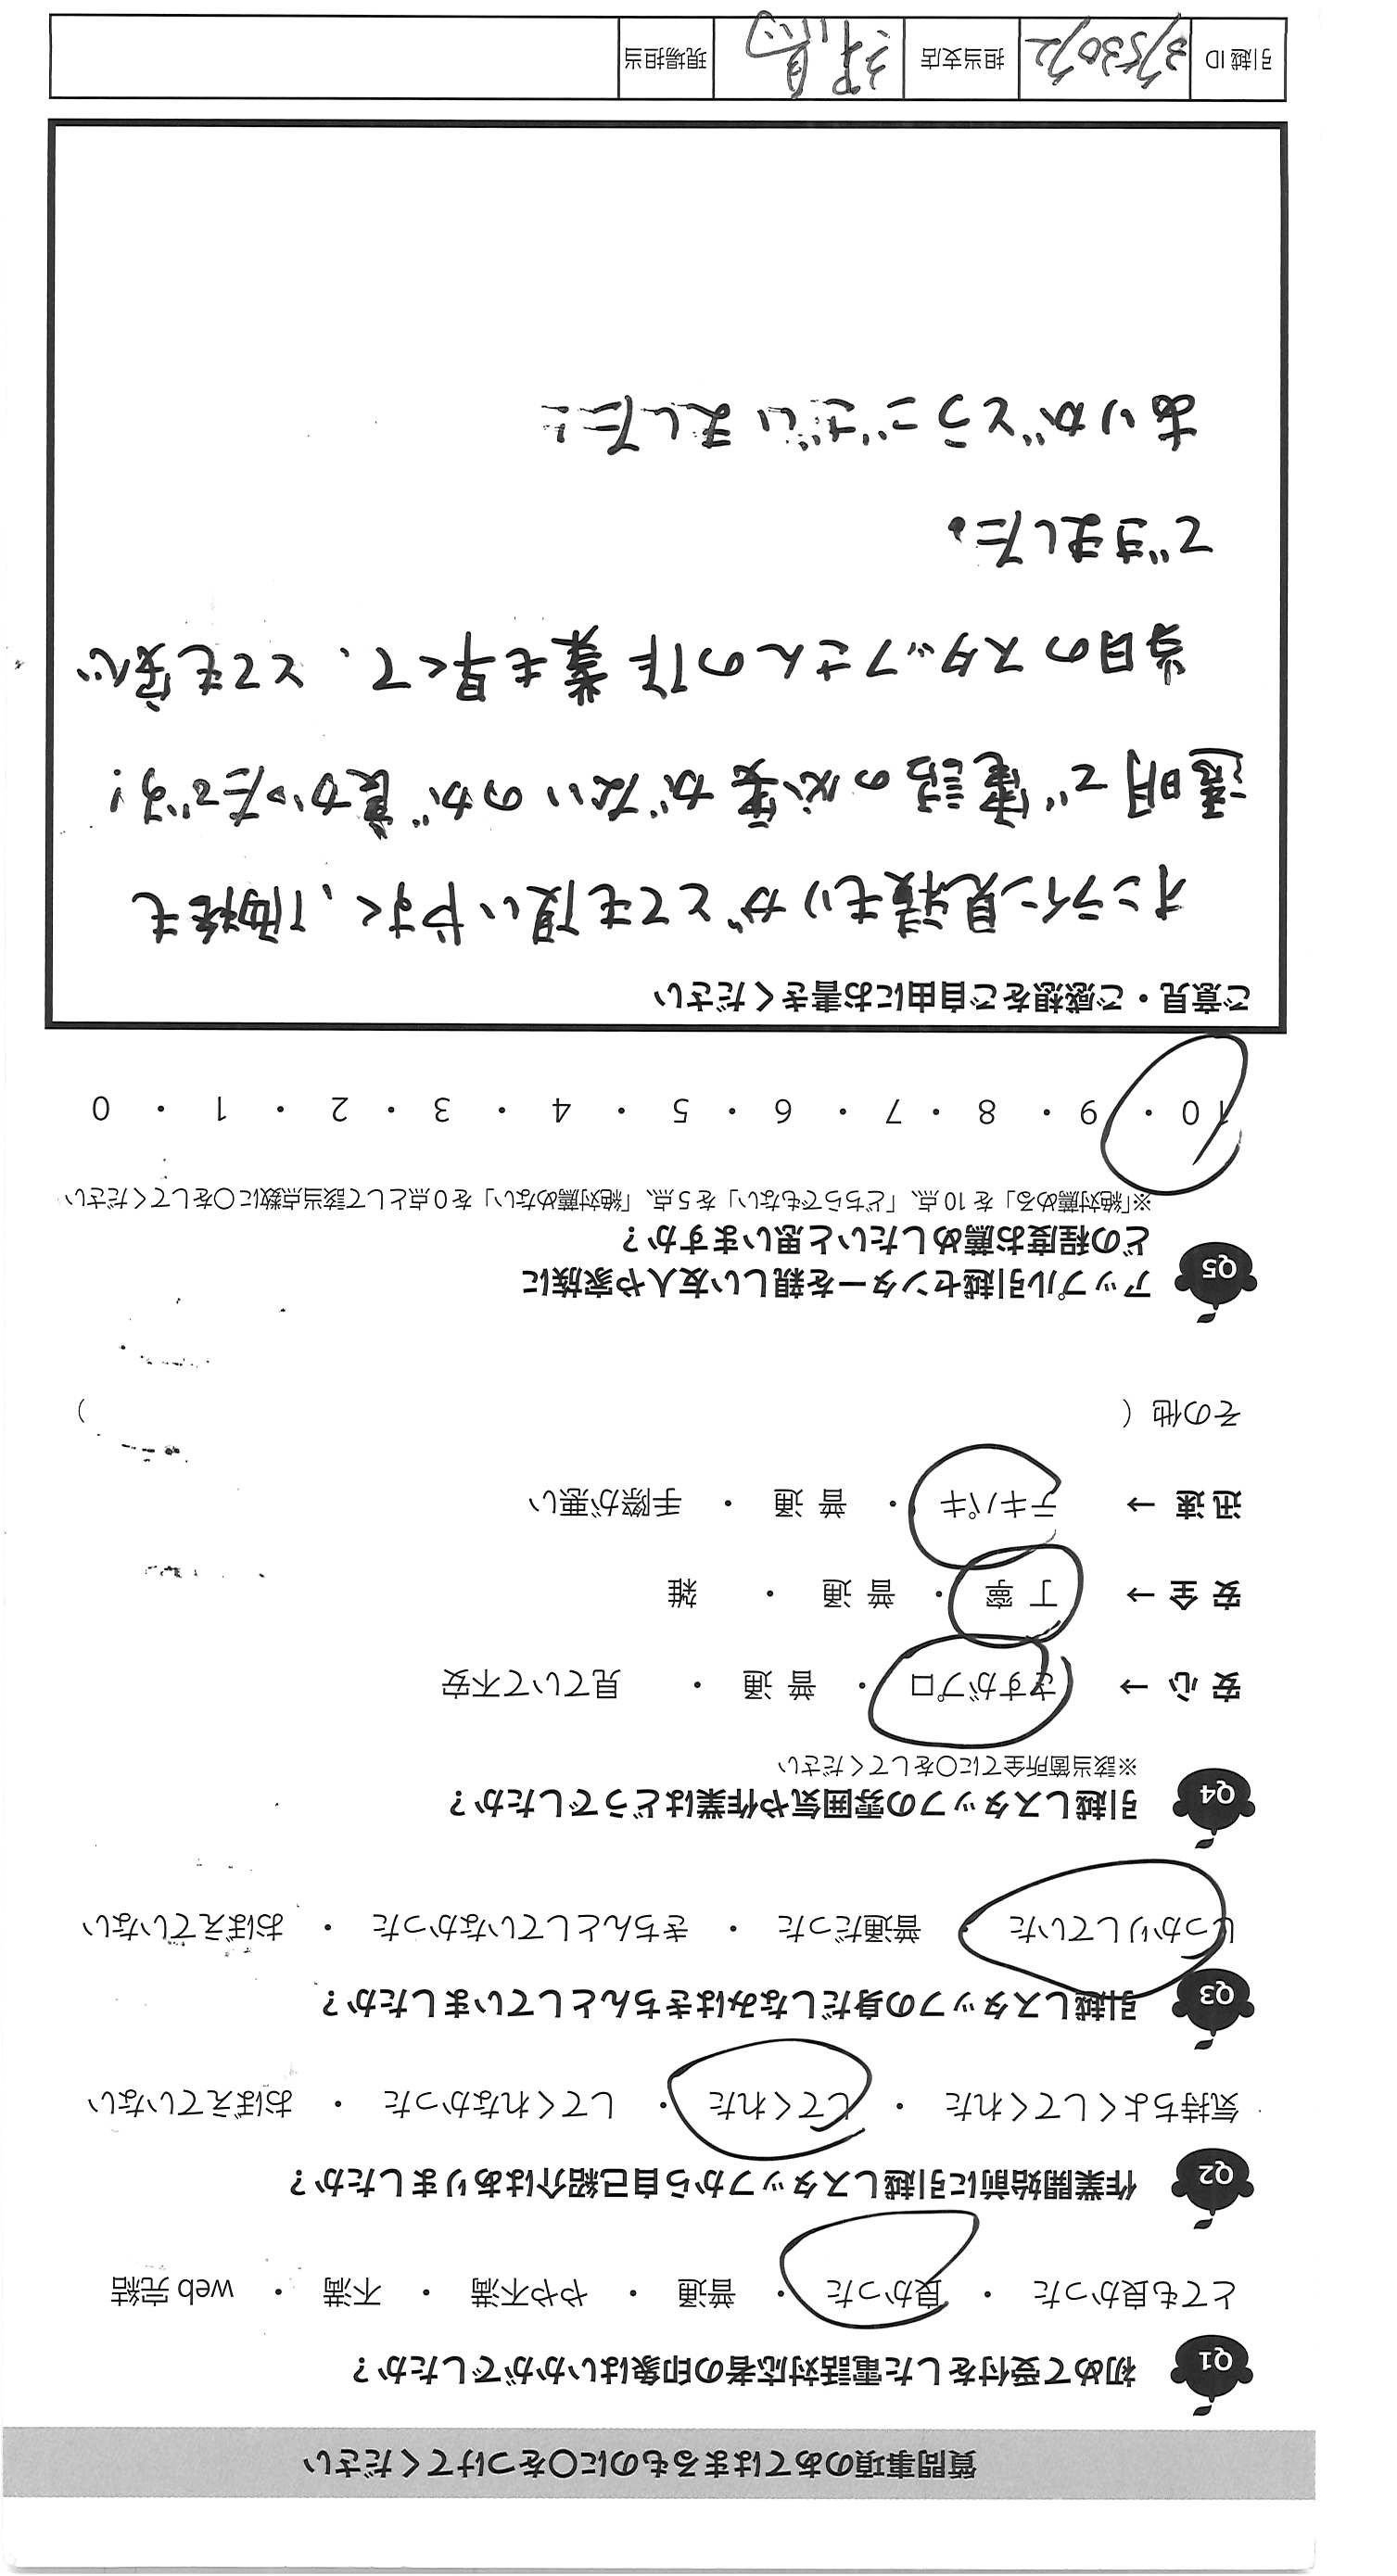 質問事項のあてはまるものに〇をつけてください
Q1 初めて受付をした電話対応者の印象はいかがでしたか?
とても良かった ・ 良かった ・ 普通 ・ やや不満 ・ 不満 ・ web 完結
Q2 作業開始前に引越しスタッフから自己紹介はありましたか?
気持ちよくしてくれた ・ してくれた ・ してくれなかった ・ おぼえていない
Q3 引越しスタッフの身だしなみはきちんとしていましたか?
しっかりしていた ・ 普通だった ・ きちんとしていなかった ・ おぼえていない
Q4 引越しスタッフの雰囲気や作業はどうでしたか?
※該当箇所全てに〇をしてください
安 心 → さすがプロ ・ 普 通 ・ 見ていて不安
安 全 → 丁 寧 ・ 普 通 ・ 雑
迅 速 → テキパキ ・ 普 通 ・ 手際が悪い
その他 ( )
Q5 アップル引越センターを親しい友人や家族に
どの程度お薦めしたいと思いますか?
※「絶対薦める」を 10 点、「どちらでもない」を 5 点、「絶対薦めない」を 0 点として該当点数に〇をしてください
10 ・ 9 ・ 8 ・ 7 ・ 6 ・ 5 ・ 4 ・ 3 ・ 2 ・ 1 ・ 0
ご意見・ご感想をご自由にお書きください
オンライン見積もりがとても使いやすく、価格も
透明で電話の必要がないのが良かったです!
当日のスタッフさんの作業も早くて、とても安心
できました。
ありがとうございました!
引越 ID 担当支店 現場担当